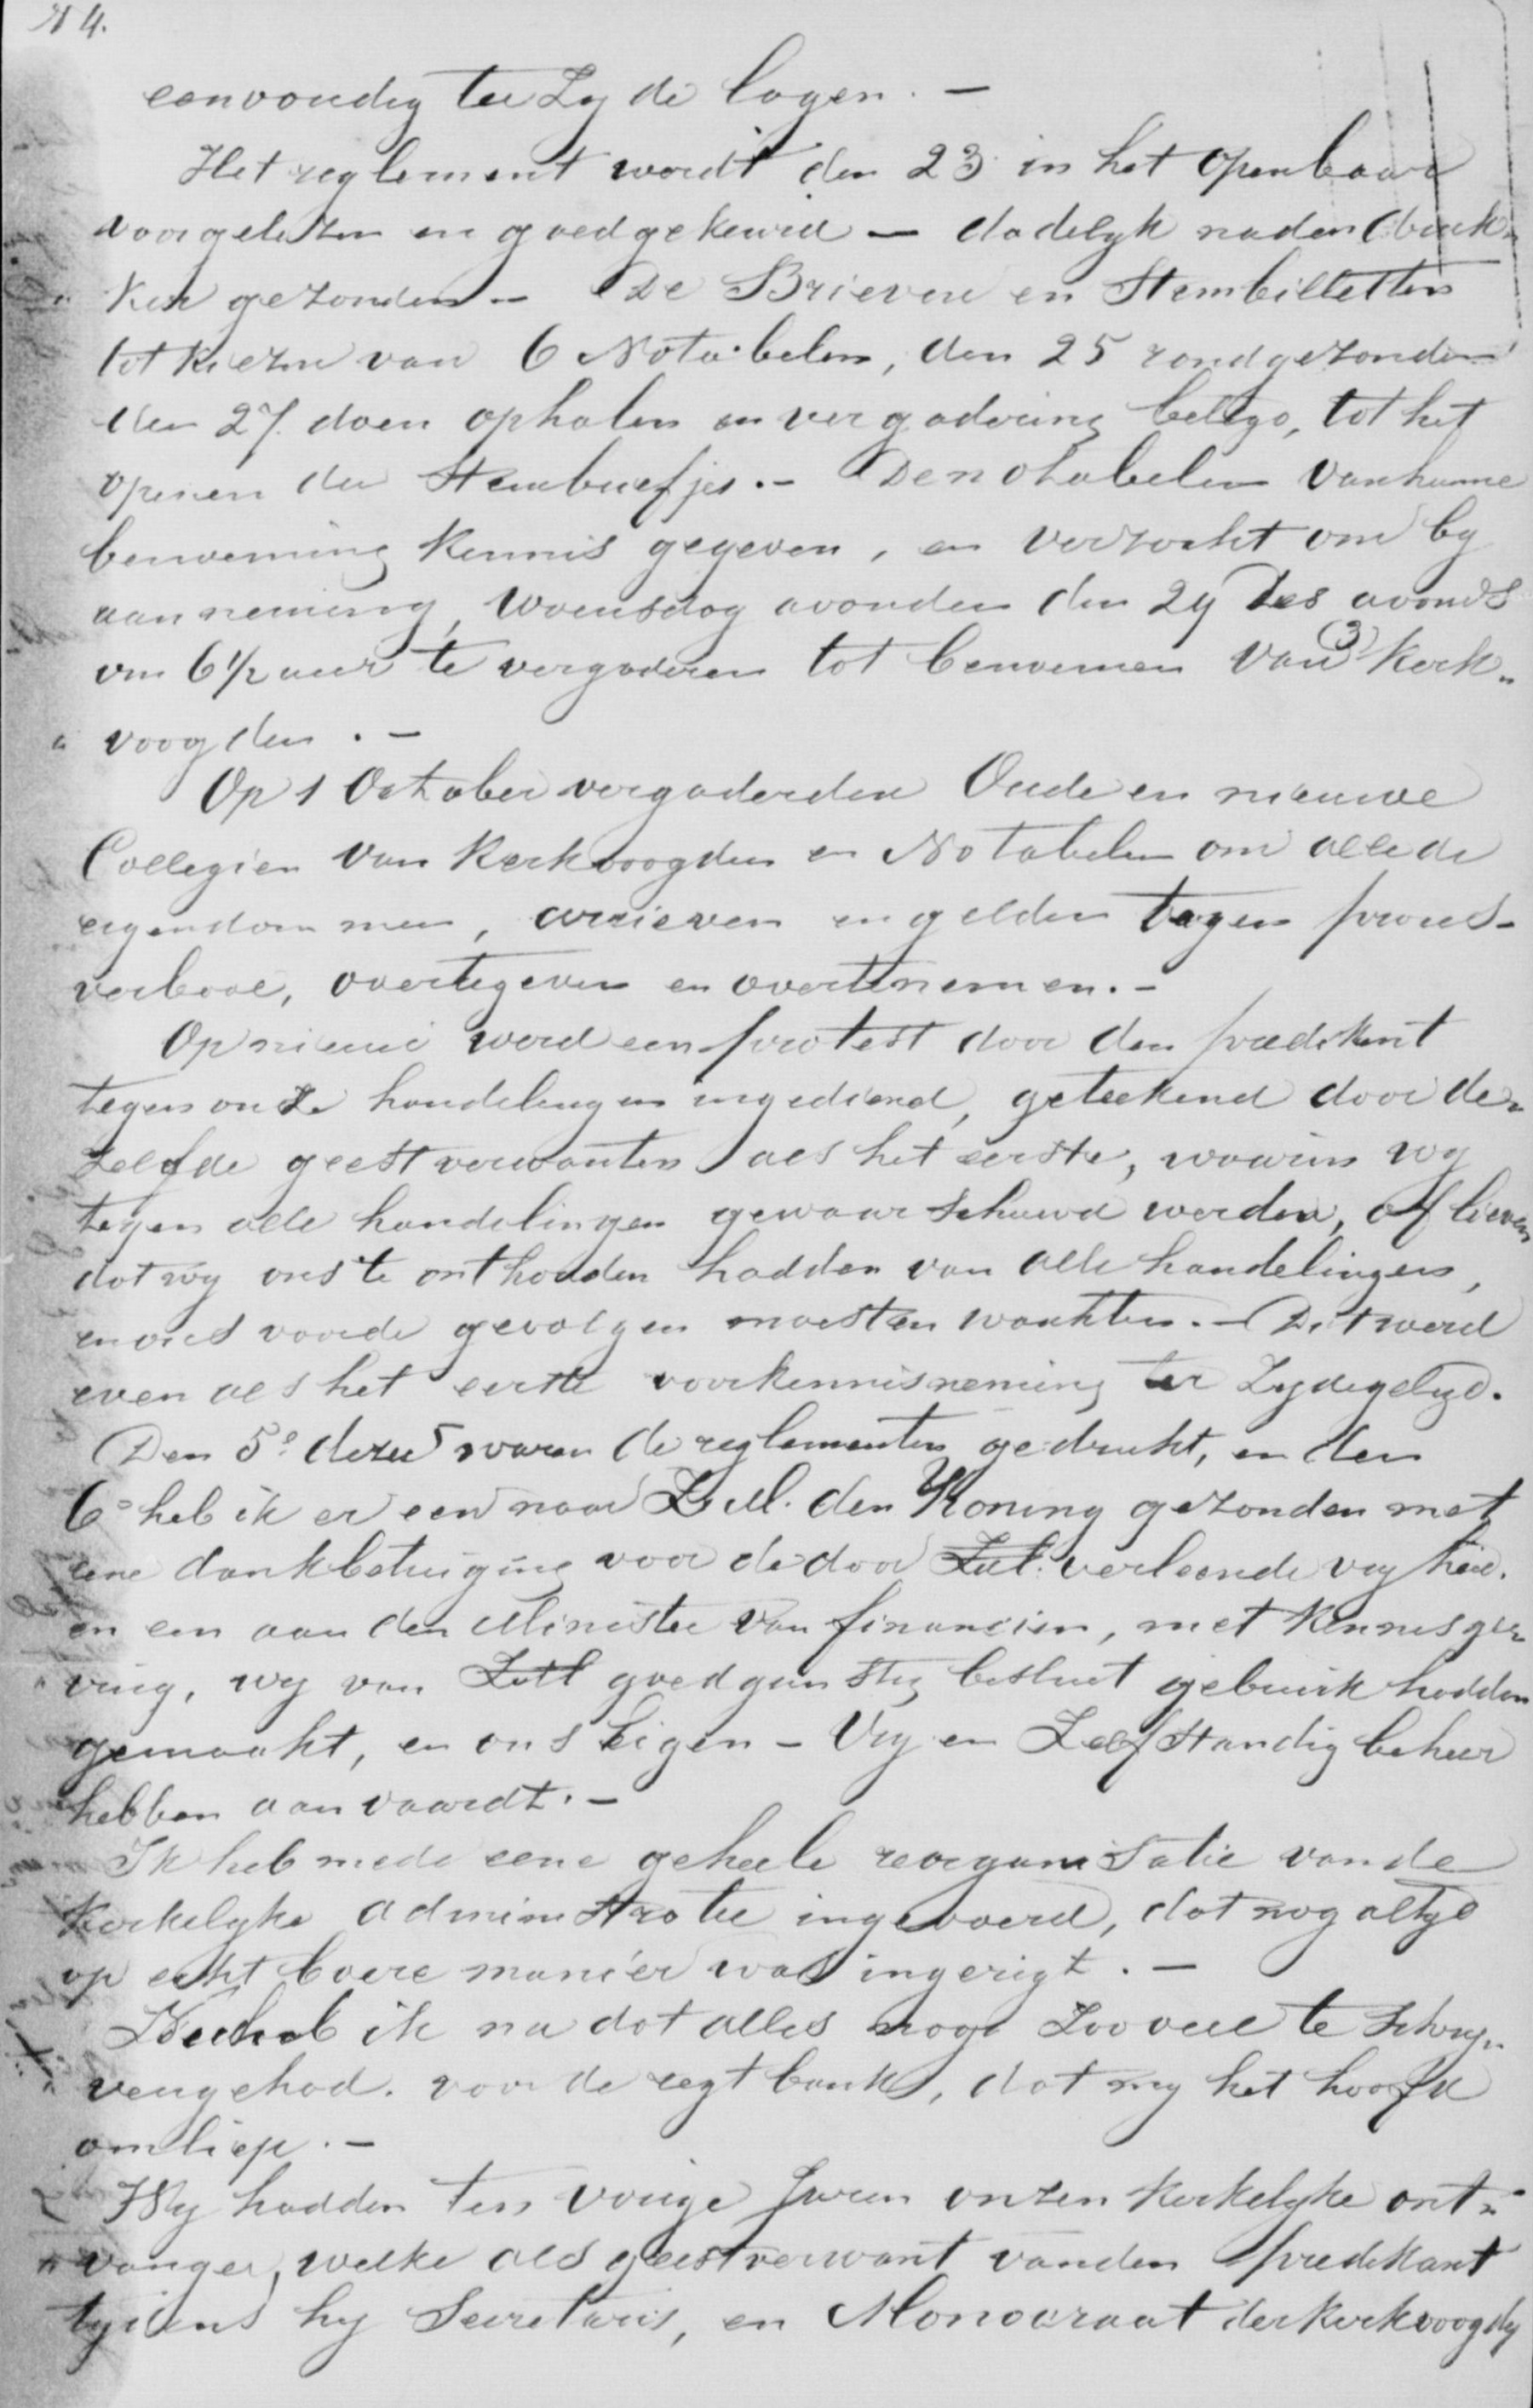 4.
eenvoudig ter Zyde lagen. —
Het reglement wordt den 23 in het openbaar
voorgelezen en goedgekeurd — dadelyk naden druk„
„ ker gezonden — De Brieven en Stembilletten
tot kiezen van 6 Notabelen, den 25 rondgezonden
den 27. doen ophalen en vergadering belegd, tot het
openen der Stembriefjes. — De notabelen van hunne
benoeming kennis gegeven, en verzocht om by
aanneming, Woensdag avonden den 29 des avonds
om 6 1/2 uur te vergaderen tot benoemen van 3 Kerk„
„ voogden. —
Op 1 October vergaderden Oude en nieuwe
Collegien van Kerkvoogden en Notabelen om alle de
eigendommen, archieven en gelden tegen proces-
verbaal, overtegeven en overtenemen. —
Op nieuw werd een protest door den predikant
tegen onze handelingen ingediend, geteekend door de„
zelfde geestverwanten als het eerste, waarin wy
tegen alle handelingen gewaarschuwd werden, of liever
dat wy ons te onthouden hadden van alle handelingen,
en ons voor de gevolgen moesten wachten. — Dit werd
even als het eerste voor kennisneming ter Zydegelegd.
Den 5e dezer waren de reglementen gedrukt, en den
6e heb ik er een naar Z.M. den Koning gezonden met
eene dankbetuiging voor de door Z.M. verleende vryheid.
en een aan den Minister van financien, met kennisge„
ving, wy van ZM goedgunstig besluit gebruik hadden
gemaakt, en ons Eigen — Vry en Zelfstandig beheer
hebben aanvaardt. —
Ik heb mede eene geheele reorganisatie van de
Kerkelyke administratie ingevoerd, dat nog altyd
op echt boere maniér was ingerigt. —
heb ik na dat alles nog Zooveel te schry„
ven gehad. voor de regtbank, dat my het hoofd
omliep. —
Wy hadden ten vorige Jaren onzen Kerkelyke ont„
„ vanger, welke als geestverwant van den predikant
tydens hy Secretaris, en Monocraat der Kerkvoogdy